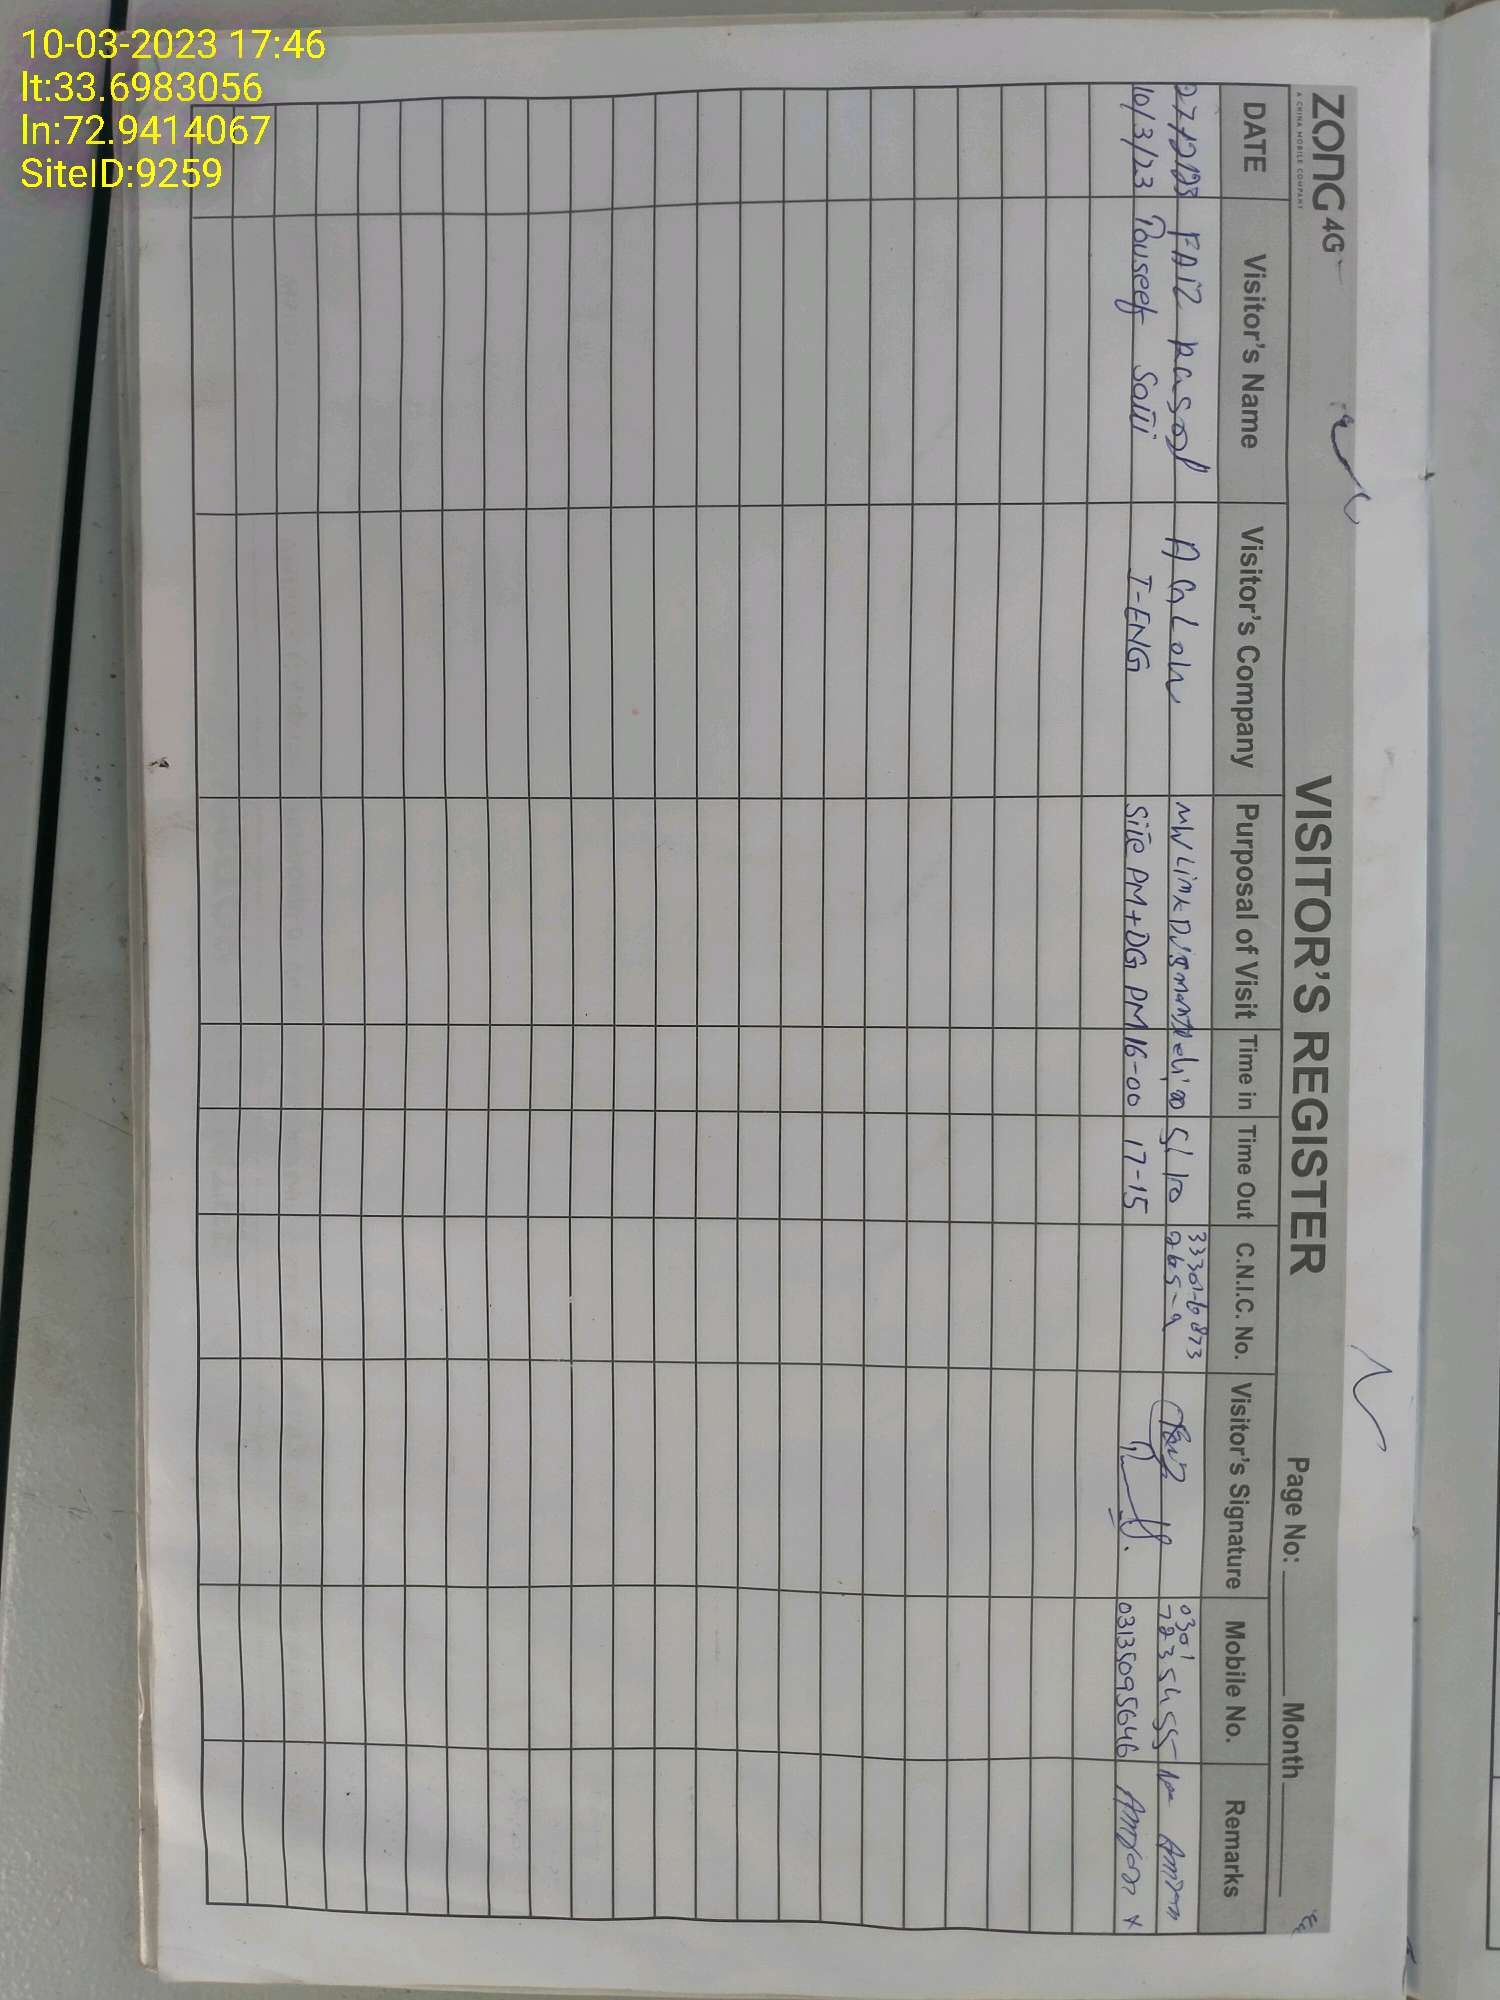 10-03-2023 17:46
lt:33.6983056
ln:72.9414067
SiteID:9259
ZONG 4G
A CHINA MOBILE COMPANY
VISITOR'S REGISTER
Page No: Month
DATE Visitor's Name Visitor's Company Purposal of Visit Time in Time Out C.N.I.C. No. Visitor's Signature Mobile No. Remarks
FAIZ Rasool MW Link
10/3/23 Touseef Satti T-ENG Site PM+DG PM 16-00 17-15 03135095646